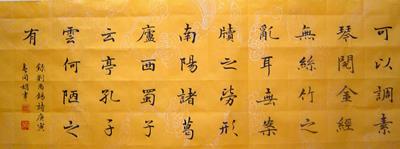 可以調素
琴閱金經
無絲竹之
亂耳無案
牘之勞形
南陽諸葛
廬西蜀子
云亭孔子
雲何陋之
有
錄劉禹錫詩庚寅